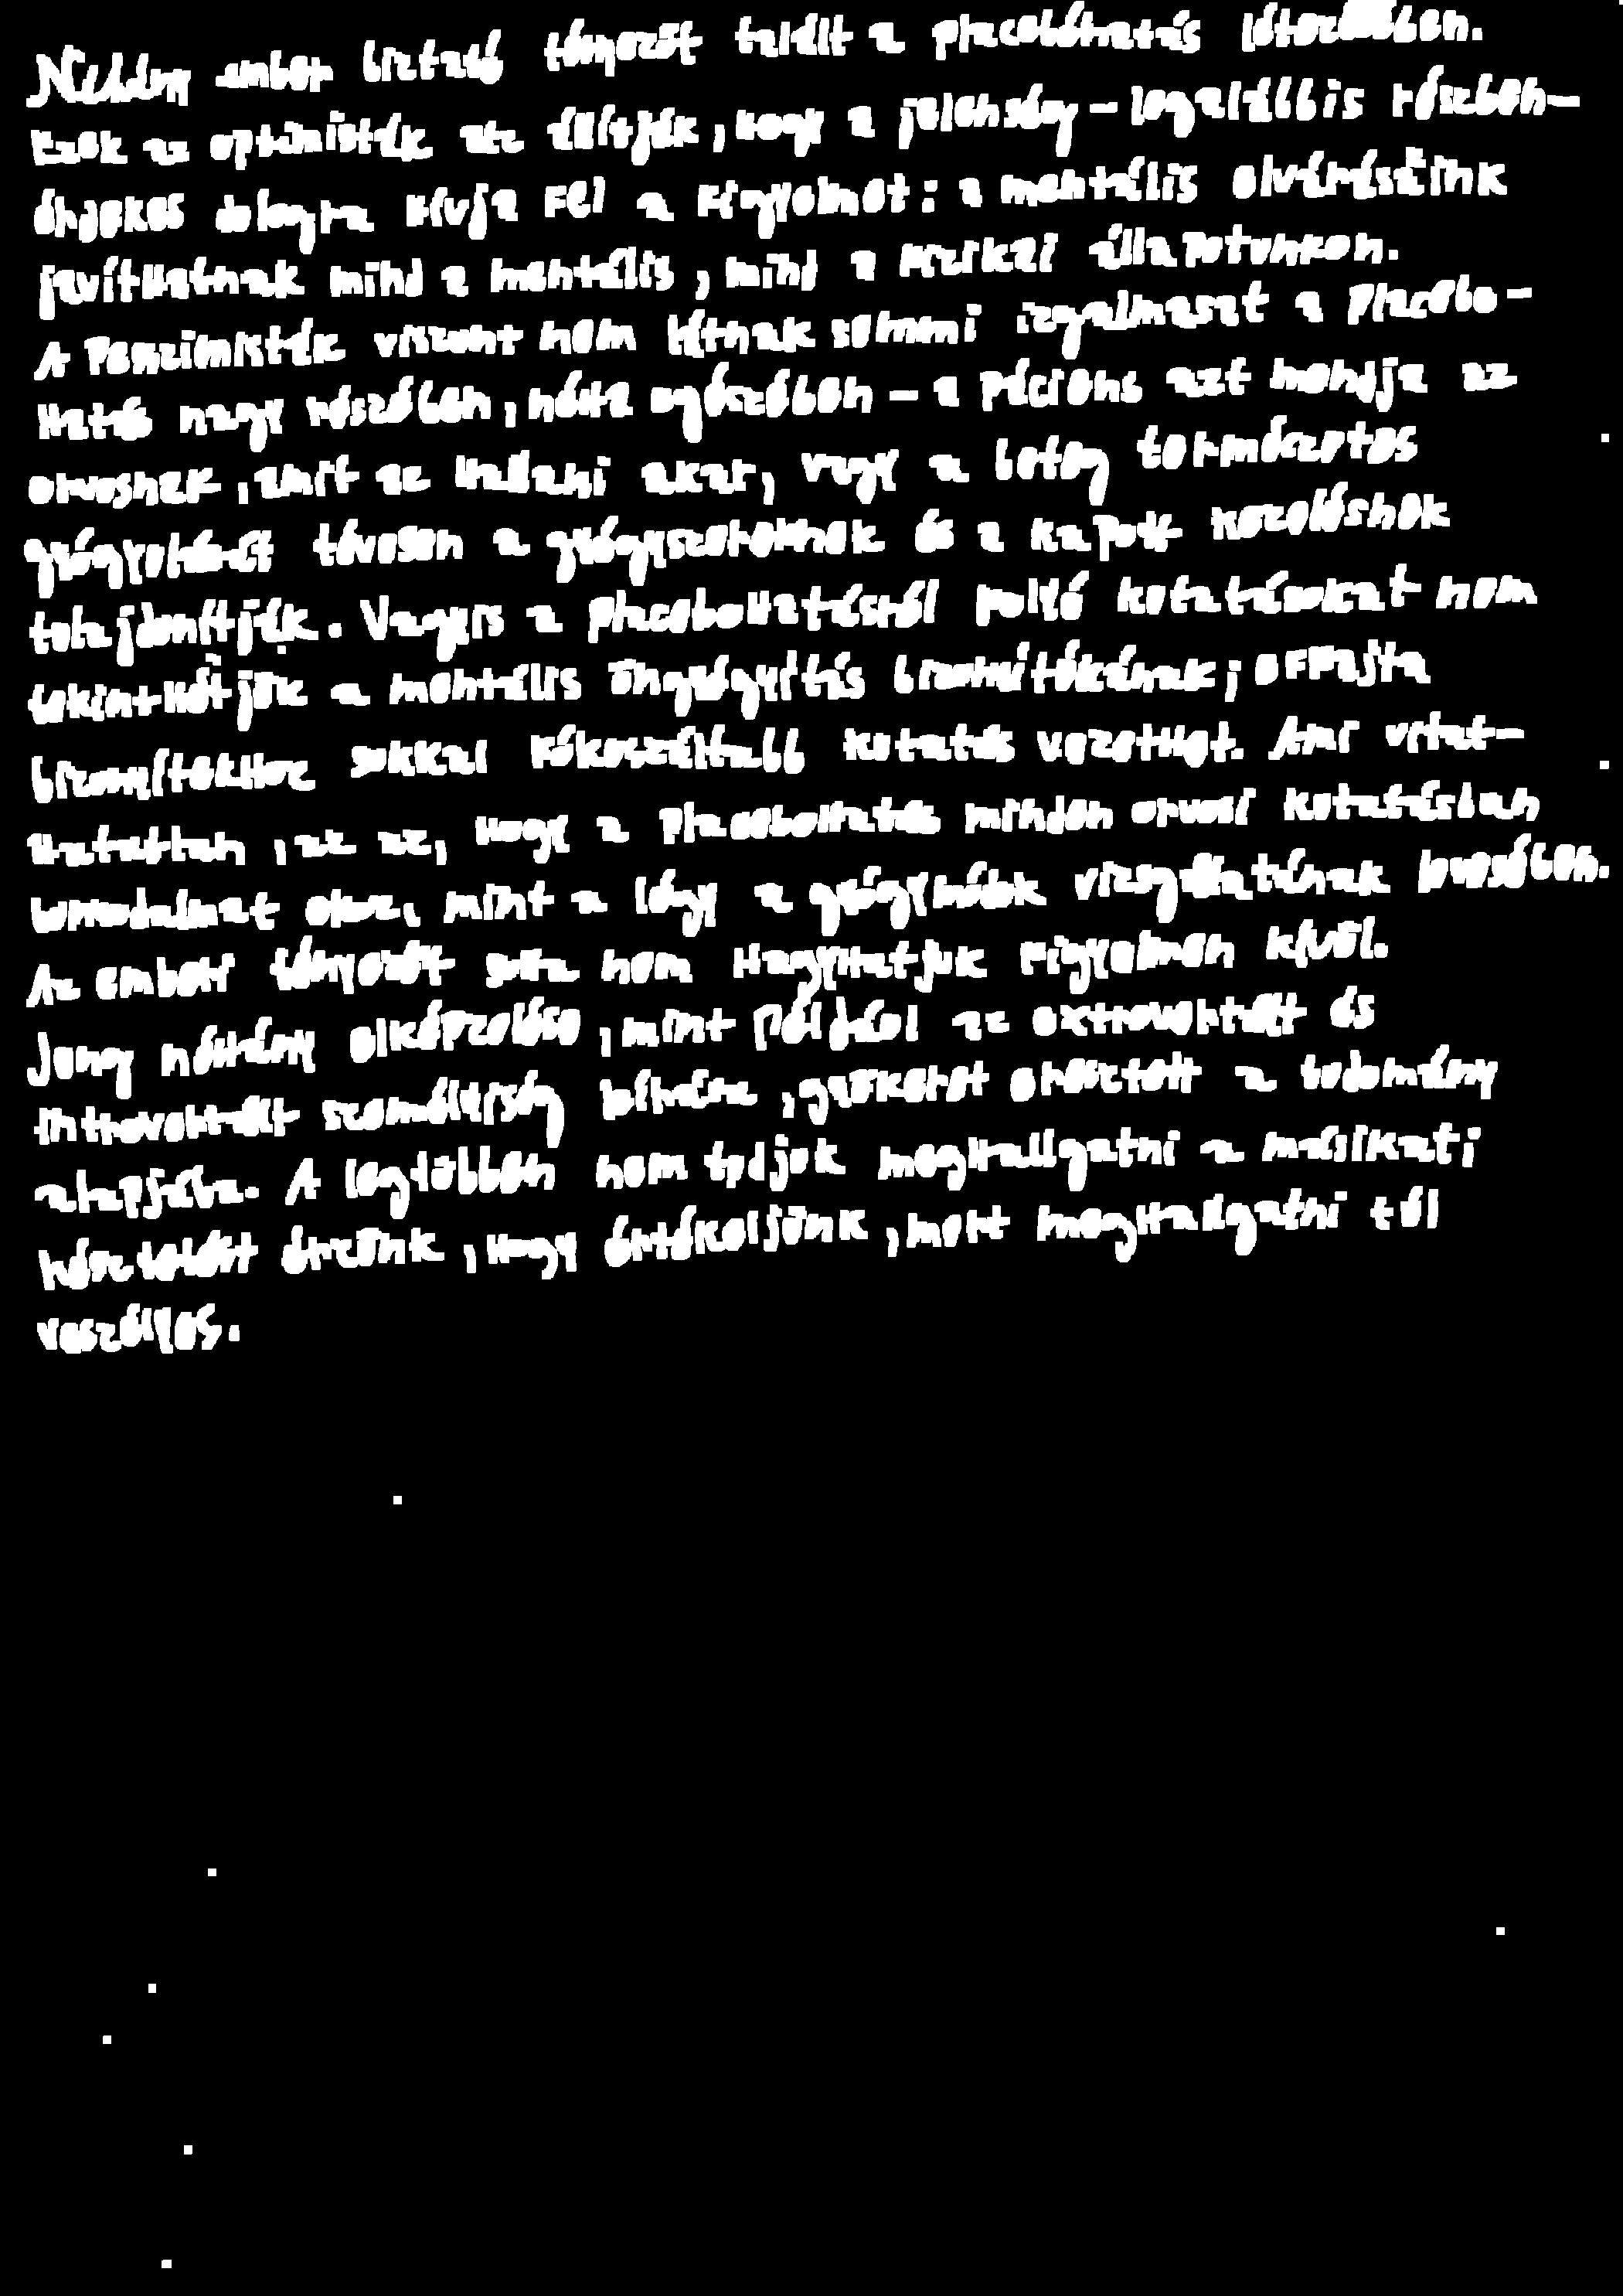 Néhány ember biztató tényezőt talált a placebóhatás létezésében.
Ezek az optimisták azt állítják, hogy a jelenség – legalábbis részben –
érdekes dologra hívja fel a figyelmet: a mentális elvárásaink
javíthatnak mind a mentális, mind a fizikai állapotunkon.
A Pesszimisták viszont nem látnak semmi izgalmasat a Placebo-
hatás nagy részében, néha egészében – a páciens azt mondja az
orvosnak, amit az hallani akar, vagy a beteg természetes
gyógyulását tévesen a gyógyszereknek és a kapott kezelésnek
tulajdonítják. Vagyis a placebohatásról folyó kutatásokat nem
tekinthetjük a mentális öngyógyítás bizonyítékának; efFajta
bizonyítékhoz sokkal kifinomultabb kutatás vezethet. Ami vitat-
hatatlan, az az, hogy a Placebohatás minden orvosi kutatásban
bonyodalmat okoz, mint a légy a gyógymódok vizsgálatának levesében.
Az emberi tényezőt soha nem Hagyhatjuk Figyelmen kívül.
Jung néhány elképzelése, mint Például az extrovertált és
introvertált személyiség leírása, gyökeret eresztett a tudomány
talajába. A legtöbben nem tudjuk meghallgatni a másikat;
késztetést érzünk, hogy értékeljünk, mert meghallgatni túl
veszélyes.